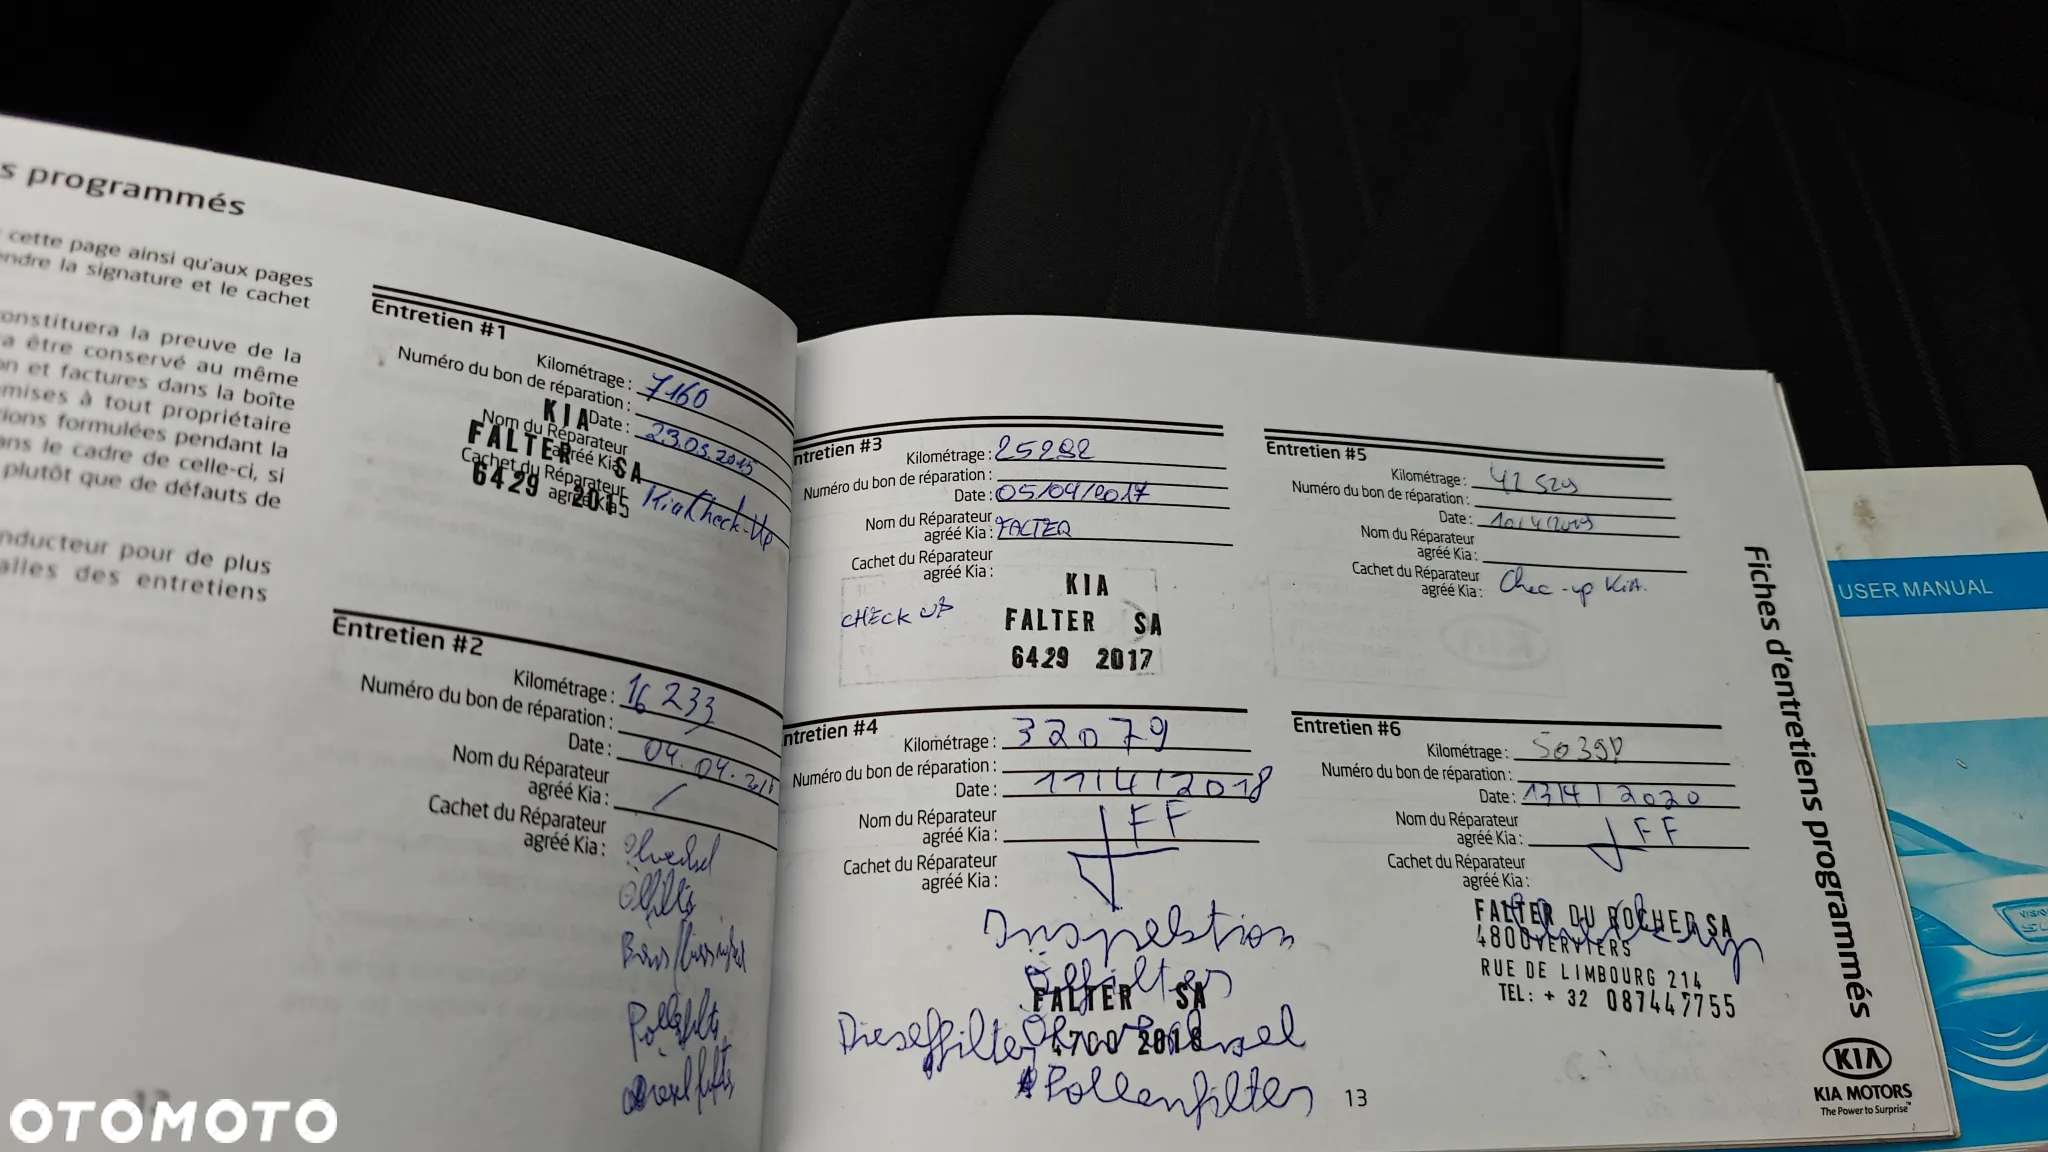 s programmés
cette page ainsi qu'aux pages
ndre la signature et le cachet
onstituera la preuve de la
a être conservé au même
on et factures dans la boîte
mises à tout propriétaire
tions formulées pendant la
ans le cadre de celle-ci, si
plutôt que de défauts de
nducteur pour de plus
alles des entretiens
Entretien #1
Kilométrage : 7160
Numéro du bon de réparation :
Date : 23.03.2015
Nom du Réparateur
agréé Kia
Cachet du Réparateur
agréé Kia : Kia Check-Up
KIA
FALTER SA
6429 2015
Entretien #2
Kilométrage : 16233
Numéro du bon de réparation :
Date : 04.04.
Nom du Réparateur
agréé Kia : /
Cachet du Réparateur
agréé Kia :
Ölwechsel
Ölfilter
Pollenfilter
ntretien #3
Kilométrage : 25292
Numéro du bon de réparation :
Date : 05/04/2017
Nom du Réparateur
agréé Kia : FALTER
Cachet du Réparateur
agréé Kia :
CHECK UP
KIA
FALTER SA
6429 2017
ntretien #4
Kilométrage : 32079
Numéro du bon de réparation :
Date : 11/4/2018
Nom du Réparateur
agréé Kia : FF
Cachet du Réparateur
agréé Kia :
Inspektion
Ölfilter
FALTER SA
Dieselfilter Ölwechsel
4700 2018
Pollenfilter
Entretien #5
Kilométrage : 42529
Numéro du bon de réparation :
Date : 10/4/2019
Nom du Réparateur
agréé Kia :
Cachet du Réparateur
agréé Kia : Chec-up KIA.
Entretien #6
Kilométrage :
Numéro du bon de réparation :
Date : 13/4/2020
Nom du Réparateur
agréé Kia : FF
Cachet du Réparateur
agréé Kia :
FALTER DU ROCHER SA
4800 VERVIERS
RUE DE LIMBOURG 214
TEL: + 32 087447755
13
Fiches d'entretiens programmés
KIA
KIA MOTORS
The Power to Surprise™
USER MANUAL
OTOMOTO